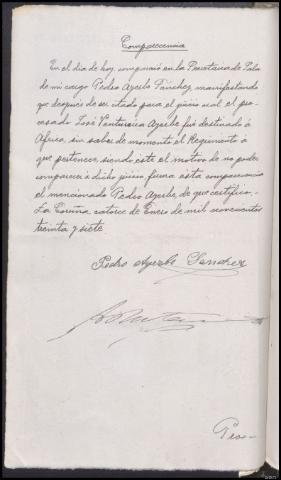 Comparecencia
En el dia de hoy, compareció en la Secretaria de Sala
de mi cargo Pedro Ayerbe Sánchez, manifestando
que después de ser citado para el juicio oral el pro-
cesado José Ayerbe fué destinado a
Africa, sin saber de momento el Regimiento a
que pertenece, siendo este el motivo de no poder
comparecer a dicho juicio firma esta comparecencia
el mencionado Pedro Ayerbe, de que certifico.-
La Coruña, catorce de Enero de mil novecientos
treinta y siete
Pedro Ayerbe Sanchez